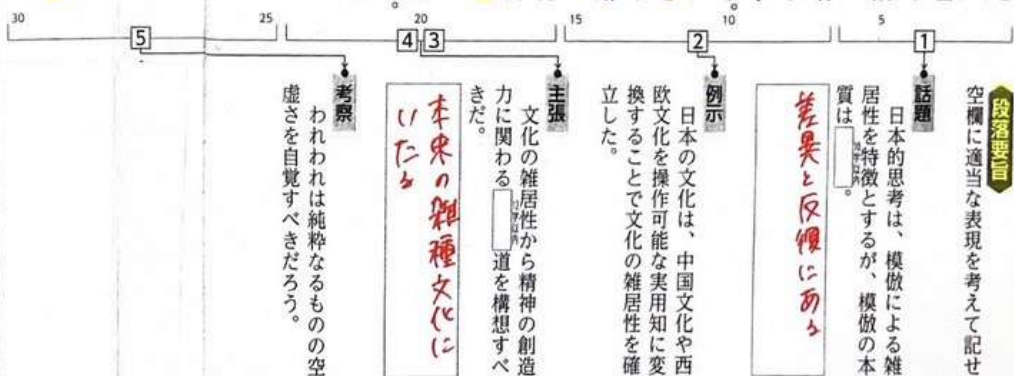 段落要旨
空欄に適当な表現を考えて記せ
1
話題
日本的思考は、模倣による雑
居性を特徴とするが、模倣の本
質は　。
差異と反復にある
2
例示
日本の文化は、中国文化や西
欧文化を操作可能な実用知に変
換することで文化の雑居性を確
立した。
4 3
主張
文化の雑居性から精神の創造
力に関わる　道を構想すべ
きだ。
本来の雑種文化に
いたる
5
考察
われわれは純粋なるものの空
虚さを自覚すべきだろう。
5
10
15
20
25
30